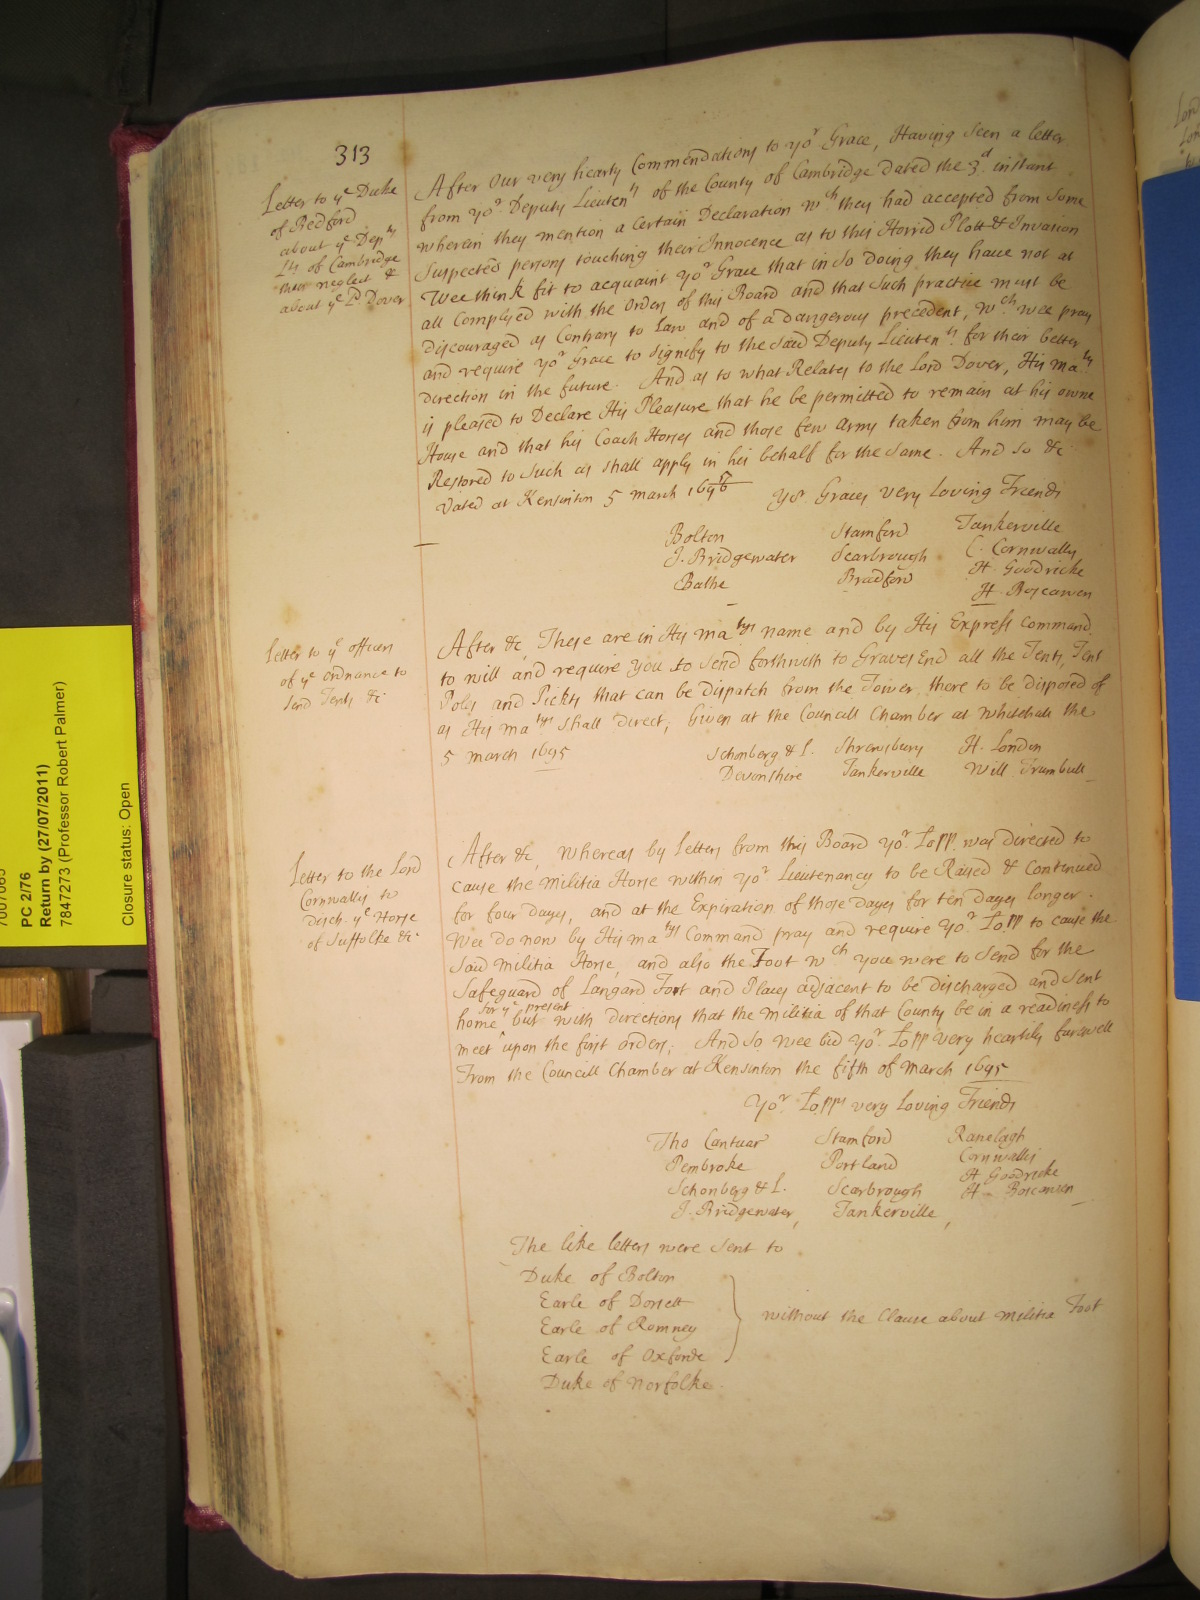 313
Letter to ye Duke
of Bedford
about ye Depty
Lts of Cambridge
their neglect &
about ye Ld. Dover
After Our very hearty Commendations to yor Grace, Having seen a letter
from yor Deputy Lieutents of the County of Cambridge dated the 3d instant
wherein they mention a Certain Declaration wch they had accepted from some
Suspected persons touching their Innocence as to this Horrid Plott & Invasion
Wee think fit to acquaint yor Grace that in so doing they have not at
all Complyed with the Orders of this Board and that such practice must be
discouraged as Contrary to Law and of a dangerous precedent, wch wee pray
and require yor Grace to signify to the said Deputy Lieutents for their better
direction in the future. And as to what Relates to the Lord Dover, His maty
is pleased to Declare His Pleasure that he be permitted to remain at his owne
House and that his Coach Horses and those few Arms taken from him may be
Restored to such as shall apply in his behalf for the same. And so &c
Dated at Kensinton 5 march 169 5/6 yor Graces very Loving Friends
Bolton Stamford Tankerville
J. Bridgewater Scarbrough C. Cornwallis
Bathe Bradford H. Goodricke
H. Boscawen
Letter to ye officers
of ye ordnance to
send Tents &c
After &c, These are in His matys name and by His Express Command
to will and require you to send forthwith to Graves End all the Tents, Tent
Poles and Picks that can be dispatch from the Tower, there to be disposed of
as His matys shall direct, Given at the Councill Chamber at Whitehall the
5 march 1695 Schonberg & L. Shrewsbury H. London
Devonshire Tankerville Will Trumbull
Letter to the Lord
Cornwallis to
Disch. ye Horse
of Suffolke &c
After &c, whereas by Letters from this Board yor Lopp. was directed to
cause the militia Horse within yor Lieutenancy to be Raised & Continued
for four dayes, and at the Expiration of those dayes for ten dayes longer.
Wee do now by His matys Command pray and require yor Lopp to cause the
said militia Horse, and also the Foot wch you were to send for the
Safeguard of Langard Fort and Places adjacent to be discharged and sent
for ye present
home but with directions that the militia of that County be in a readiness to
meet upon the first orders; And so wee bid yor Lopp very heartily farewell
From the Councill Chamber at Kensinton the fifth of march 1695
Yor Lopps very loving Friends
Tho Cantuar Stamford Ranelagh
Pembroke Portland Cornwallis
Schonberg & L. Scarbrough H Goodricke
J. Bridgewater, Tankerville, H. Boscawen
The like letters were sent to
Duke of Bolton
Earle of Dorsett
Earle of Romney
Earle of Oxforde
without the Clause about militia Foot
Duke of Norfolke.
PC 2/76
Return by (27/07/2011)
7847273 (Professor Robert Palmer)
Closure status: Open